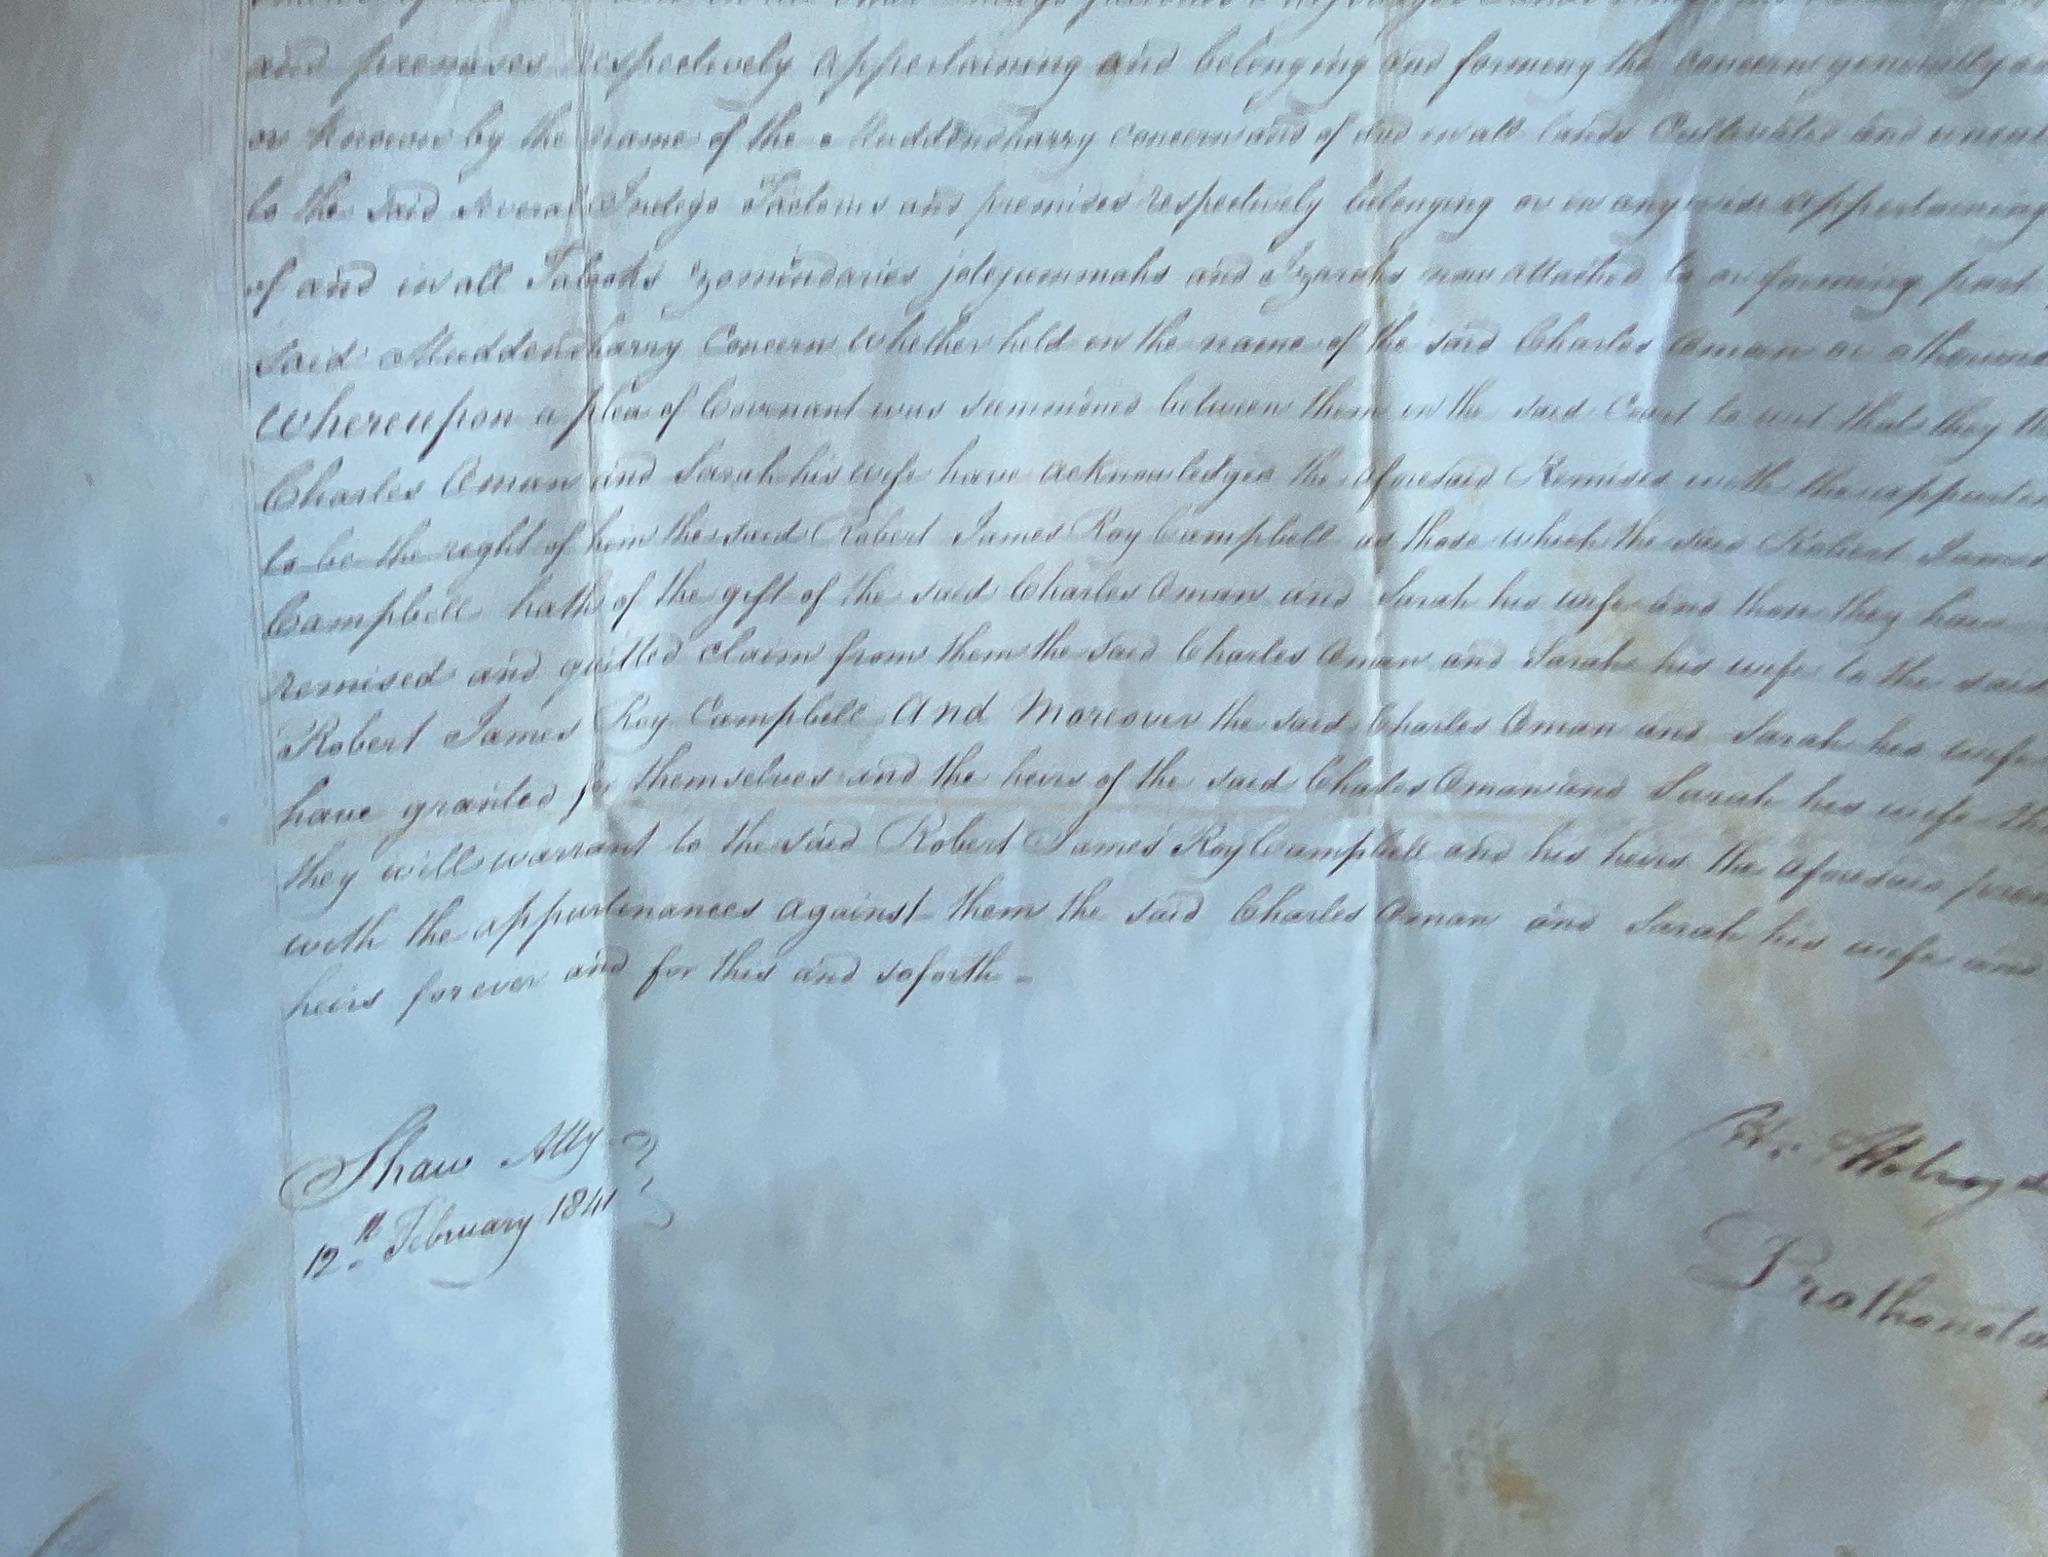 and premises respectively appertaining and belonging and forming the concern generally
or known by the name of the Muddendharry Concern and of and in all lands Cultivated and
to the said several Indigo Factories and premises respectively belonging or in any wise appertaining
of and in all Talooks zemindaries jotejummahs and Izarahs now attached to or forming part
said Muddendharry Concern Whether held in the name of the said Charles Oman or
Whereupon a plea of Covenant was summoned between them in the said Court to wit that they the
Charles Oman and Sarah his wife have acknowledged the aforesaid Premises with the
to be the right of him the said Robert James Roy Campbell as those which the said Robert James
Campbell hath of the gift of the said Charles Oman and Sarah his wife and those they have
remised and quitted claim from them the said Charles Oman and Sarah his wife to the said
Robert James Roy Campbell And Moreover the said Charles Oman and Sarah his wife
have granted for themselves and the heirs of the said Charles Oman and Sarah his wife
they will warrant to the said Robert James Roy Campbell and his heirs the aforesaid
with the appurtenances against them the said Charles Oman and Sarah his wife and
heirs forever and for this and soforth -
Shaw Atty
12th February 1841
Prothonota